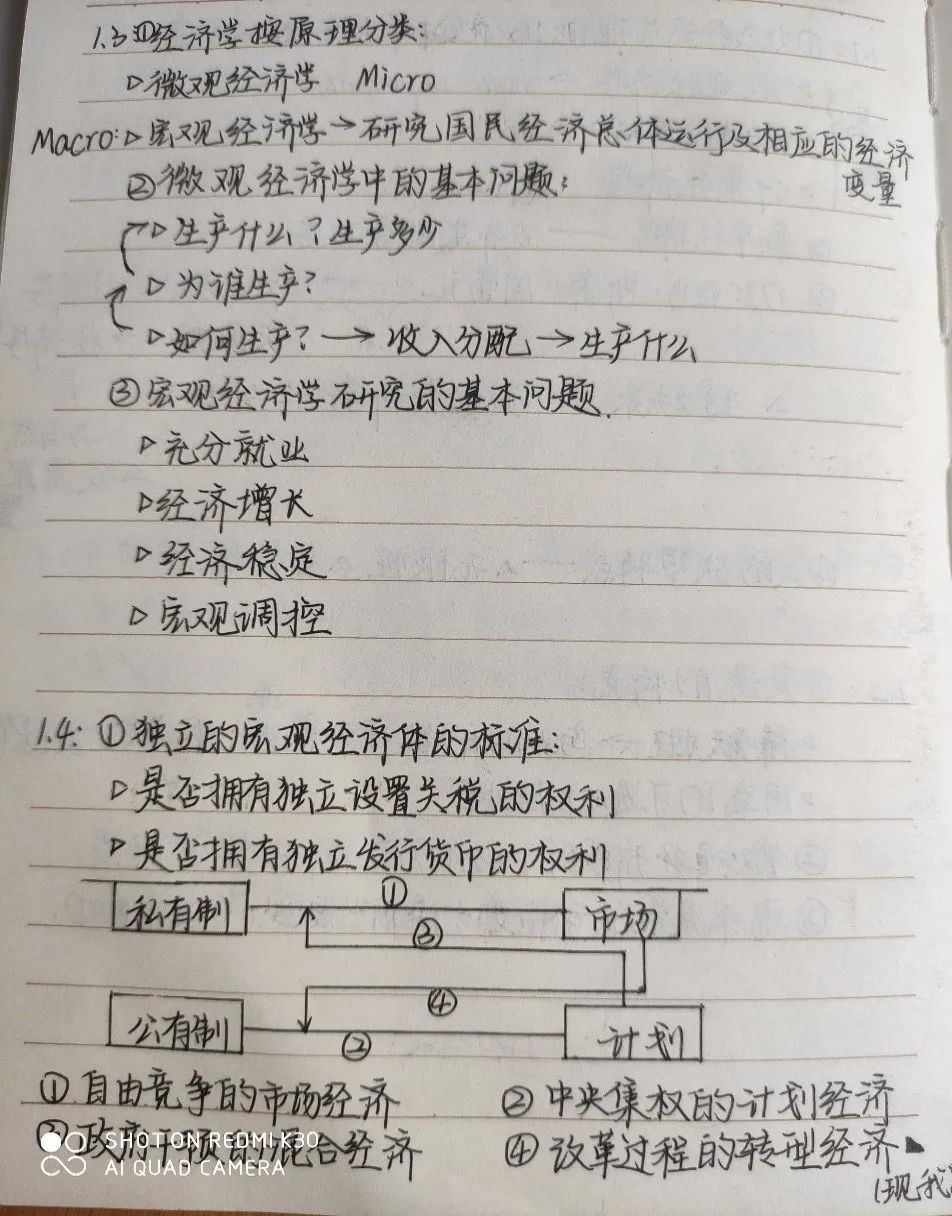 1.3 ①经济学按原理分类:
▷微观经济学 Micro
Macro:▷宏观经济学→研究国民经济总体运行及相应的经济
变量
②微观经济学中的基本问题:
▷生产什么?生产多少
▷为谁生产?
▷如何生产?→收入分配→生产什么
③宏观经济学研究的基本问题.
▷充分就业
▷经济增长
▷经济稳定
▷宏观调控
1.4: ①独立的宏观经济体的标准:
▷是否拥有独立设置关税的权利
▷是否拥有独立发行货币的权利
私有制 ① 市场
③
④
公有制 ② 计划
①自由竞争的市场经济 ②中央集权的计划经济
③政府干预的混合经济 ④改革过程的转型经济
(现我
SHOT ON REDMI K30
AI QUAD CAMERA